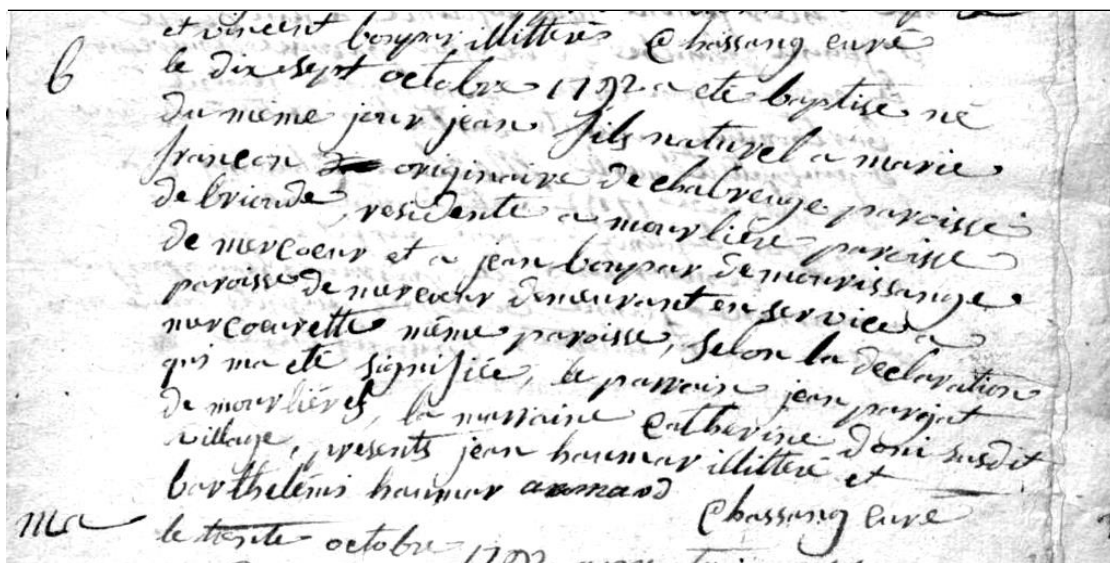 et vincent bonpar illitterés Chassang curé
b
le dix sept octobre 1792 a eté baptisé né
du même jour jean fils naturel a marie
françon originaire de chabreuge paroisse
de brioude, residente a mourliére paroisse
de mercoeur et a jean bonpar de mourissange
paroisse de mercoeur demeurant en service a
mercoeurette même paroisse, selon la declaration
qui ma eté signifiée, le parrain jean parojat
de mourliéres, la marraine Catherine Doni susdit
village, presents jean haumar illitteré et
barthelémi haumar armand
Chassang curé
ma
le trente octobre 1792